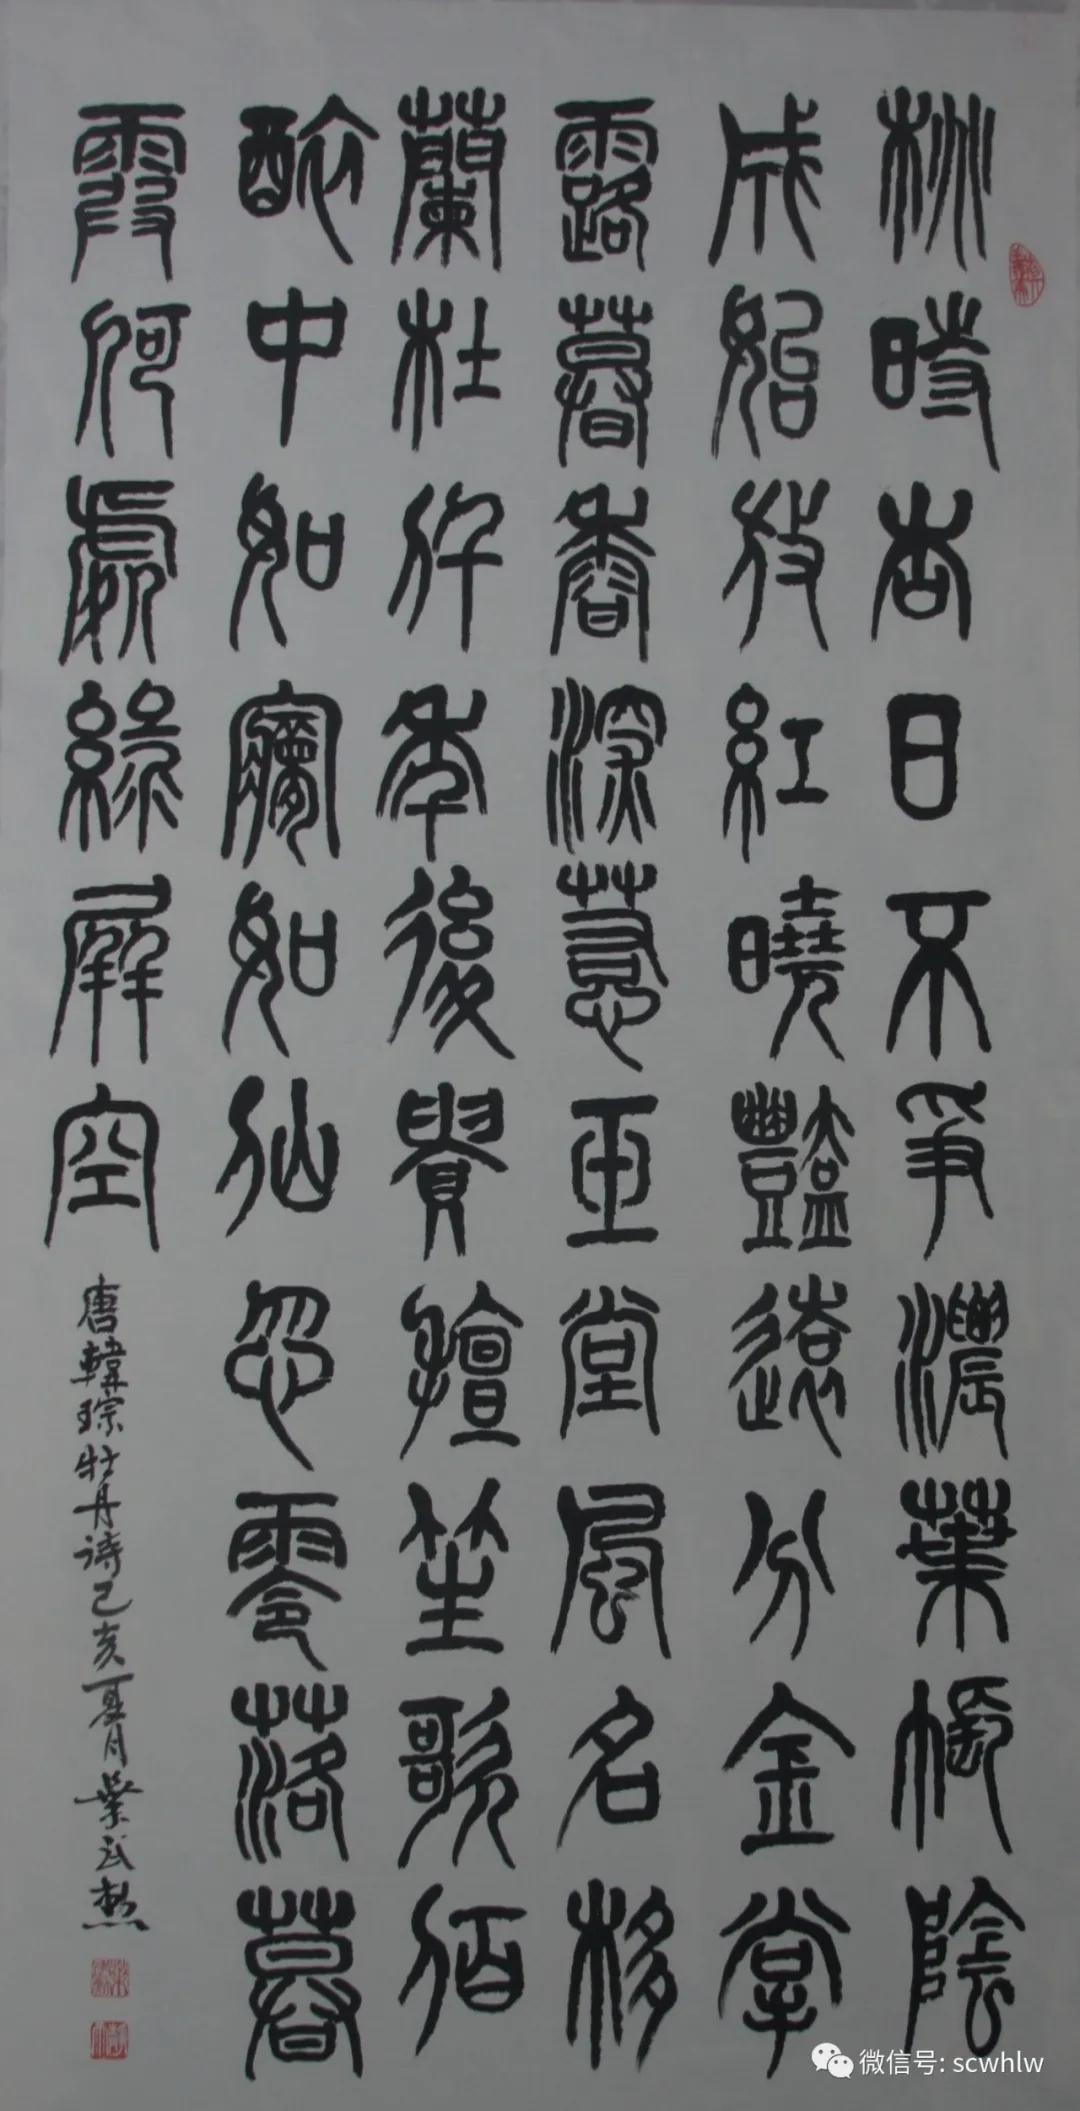 桃時杏日不爭濃葉帳陰
成始放紅曉豔遠分金掌
露暮香深惹玉堂風名移
蘭杜仟年後貴擅笙歌佰
醉中如夢如仙忽零落暮
霞何處綠屏空
唐韓琮牡丹诗己亥夏月
微信号: scwhlw